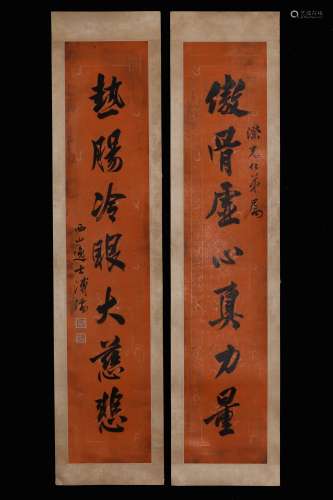 傲骨虛心真力量
熱腸冷眼大慈悲
西山逸士溥儒